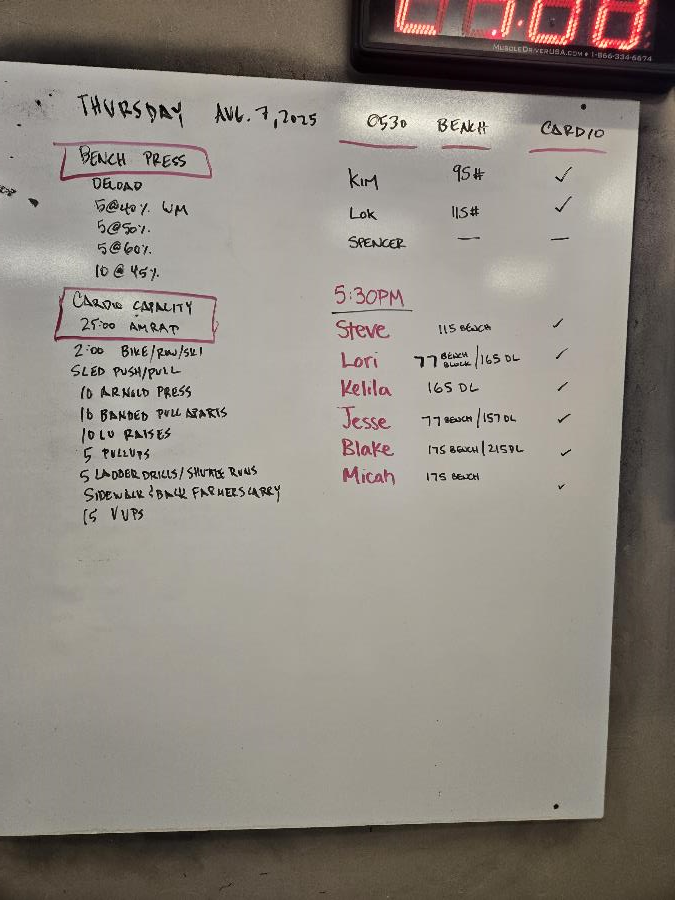 MUSCLEDRIVERUSA.COM • 1-866-334-6674
THURSDAY AUG. 7, 2025
BENCH PRESS
DELOAD
5@40% WM
5@50%
5@60%
10@45%
CARDIO CAPACITY
25:00 AMRAP
2:00 BIKE/ROW/SKI
SLED PUSH/PULL
10 ARNOLD PRESS
10 BANDED PULL APARTS
10 LU RAISES
5 PULLUPS
5 LADDER DRILLS/SHUTTLE RUNS
SIDEWALK & BACK FARMERS CARRY
15 VUPS
0530 BENCH CARDIO
KIM 95# ✓
LOK 115# ✓
SPENCER — —
5:30PM
Steve 115 BENCH ✓
Lori 77 BENCH BLOCK/165 DL ✓
Kelila 165 DL ✓
Jesse 77 BENCH/157 DL ✓
Blake 175 BENCH/215 DL ✓
Micah 175 BENCH ✓